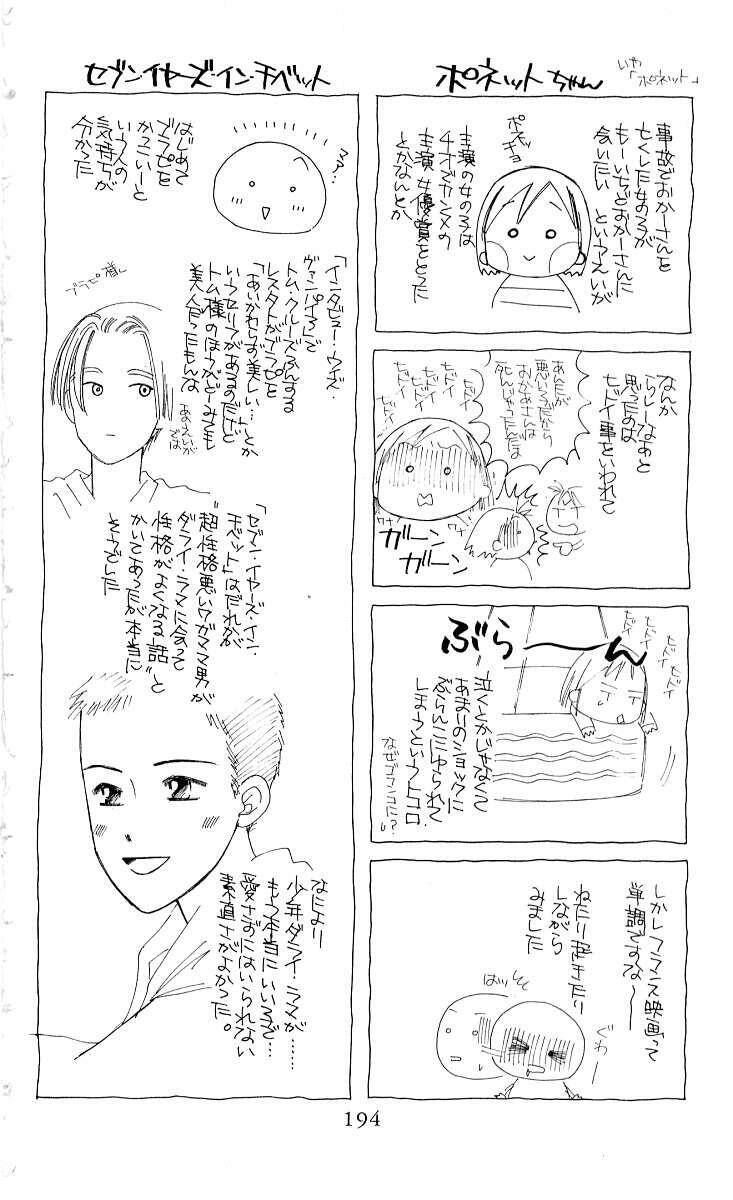 ポネットちゃん
いや「ポネット」
事故でおかーさんを
亡くした女の子が
もーいちどおかーさんに
会いたい というえいが
ポネッ
チョ
主演の女の子は
4才でカンヌの
主演女優賞をとった
とかなんとか
なんか
らしーなぁと
思ったのは
ヒドイ事をいわれて
あんたが
悪いろだから
おかあさんは
死んじゃったんだは
ヒドイ
ヒドイ
ヒドイ
ヒドイ
ヒドイ
ガーン
ガーン
ヒドイ
ヒドイ
ヒドイ
ヒドイ
ぶらーん
泣くとかじゃなくて
あまりのショックに
ぶらんこにゆられて
しまうというトコロ.
なぜブランコに?
しかしフランス映画って
単調ですな〜
ねたり起きたり
しながら
みました
ばっ
ぐわー
セブン・イヤーズ・イン・チベット
はじめて
ブラピを
かっこいーと
いう人の
気持ちが
分かった
「インタビュー・ウィズ・
ヴァンパイア」で
トム・クルーズふんする
レスタトがブラピを
「あいかわらず美しい…」とか
いうセリフがあるのだけど
トム様のほうがどーみても
美人だったもんな
あのえいが
では
ブラピ様
「セブン・イヤーズ・イン・
チベット」はだれかが
"超性格悪いワガママ男が
ダライ・ラマに会って
性格がよくなる話"と
かいてあったが本当に
そうでした
なにより
少年ダライ・ラマが……
もう本当にいい子で…
愛さずにはいられない
素直さがよかった。
194